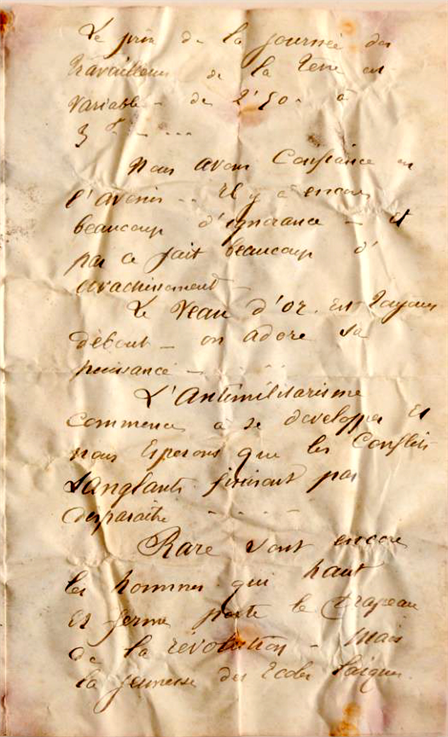 Le prix de la journée des
travailleurs de la Terre est
variable - de 2f 50 - à
3f - - ...
Nous avons Confiance en
l'avenir .. Il y a encore
beaucoup d'ignorance - et
par ce fait beaucoup d'
avachissement -
Le Veau d'Or. est toujours
debout - on adore sa
puissance - . . . .
L'Antimilitarisme
commence à se developper et
nous Esperons que les Conflits
Sanglants finiront par
disparaitre - - - -
Rare sont encore
les hommes qui haut
et ferme porte le Drapeau
de la révolution - Mais
la jeunesse des Ecoles laiques